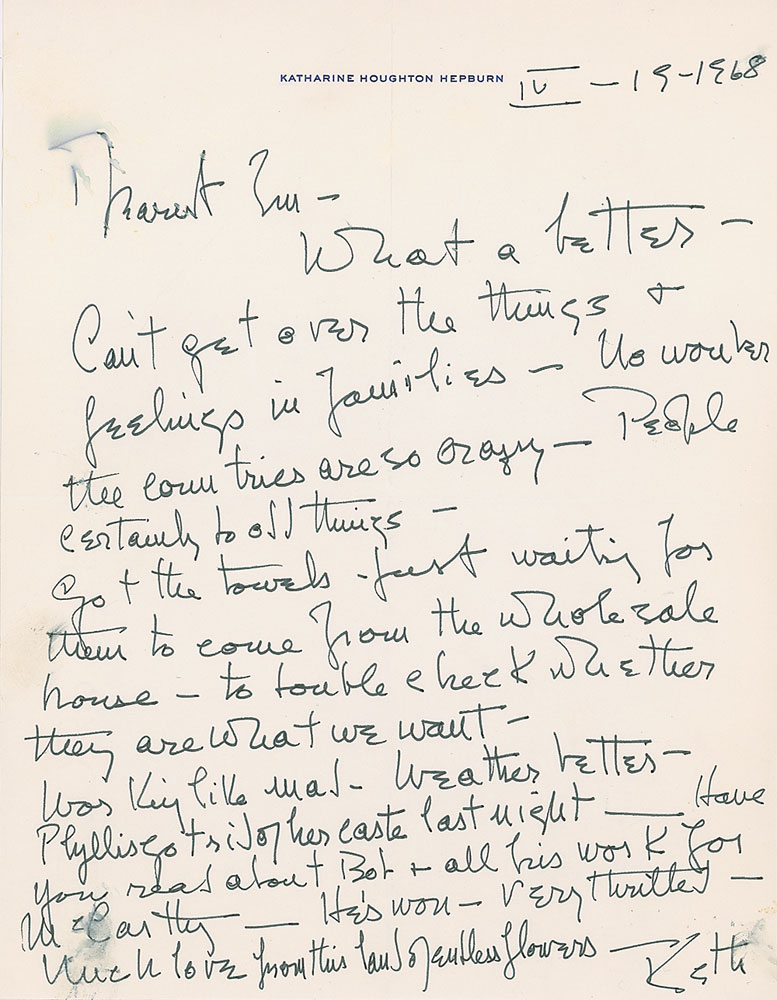 KATHARINE HOUGHTON HEPBURN
IV - 19-1968
Dearest Em -
What a letter -
Can't get over the things +
feelings in families - No wonder
the countries are so crazy - People
certainly to odd things -
Got the towels - just waiting for
them to come from the wholesale
house - to double check whether
they are what we want -
Working like mad - Weather better -
Phyllis got rid of her caste last night — Have
you read about Bob + all his work for
McCarthy — He's won - Very thrilled -
Much love from this land of endless flowers — Kath